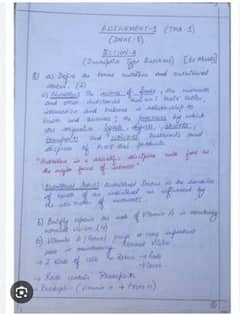 ASSIGNMENT-1 (TMA-1)
(DNHE-1)
SECTION-A
(Descriptive Type Questions) [80 Marks]
a) Define the terms nutrition and nutritional
status. (2)
a) Nutrition: The science of foods, the nutrients
and other substances their action,
interaction and balance in relationship to
health and disease; the processes by which
the organism ingests, digests, absorbs,
transports and utilizes nutrients and
disposes of their end products.
"Nutrition is a scientific discipline with food as
the major focus of interest"
Nutritional Status: Nutritional Status is the condition
of health of an individual as influenced by
the utilization of nutrients.
b) Briefly explain the role of Vitamin A in maintaining
normal vision. (4)
b) Vitamin A plays a very important
role in maintaining Normal Vision
→ 2 kinds of cells in Retina → Rods
→ Cones
→ Rods contain Rhodopsin